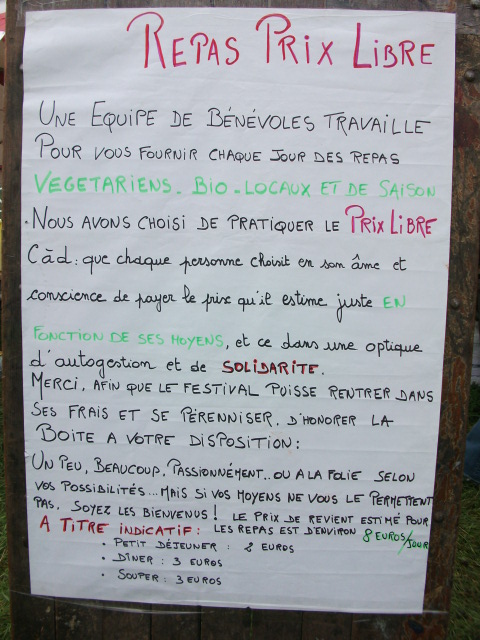 REPAS PRIX LIBRE
UNE EQUIPE DE BÉNÉVOLES TRAVAILLE
POUR VOUS FOURNIR CHAQUE JOUR DES REPAS
VEGETARIENS. BIO. LOCAUX ET DE SAISON
. NOUS AVONS CHOISI DE PRATIQUER LE PRIX LIBRE
Càd: que chaque personne choisit en son âme et
conscience de payer le prix qu'il estime juste EN
FONCTION DE SES MOYENS, et ce dans une optique
d'autogestion et de SOLIDARITE.
MERCI, AFIN QUE LE FESTIVAL PUISSE RENTRER DANS
SES FRAIS ET SE PÉRENNISER, D'HONORER LA
BOITE A VOTRE DISPOSITION:
UN PEU, BEAUCOUP, PASSIONNÉMENT.. OU A LA FOLIE SELON
VOS POSSIBILITÉS... MAIS SI VOS MOYENS NE VOUS LE PERMETTENT
PAS, SOYEZ LES BIENVENUS! LE PRIX DE REVIENT ESTIMÉ POUR
A TITRE INDICATIF: LES REPAS EST D'ENVIRON 8 EUROS/JOUR
• PETIT DÉJEUNER : 2 EUROS
• DÎNER : 3 EUROS
• SOUPER : 3 EUROS